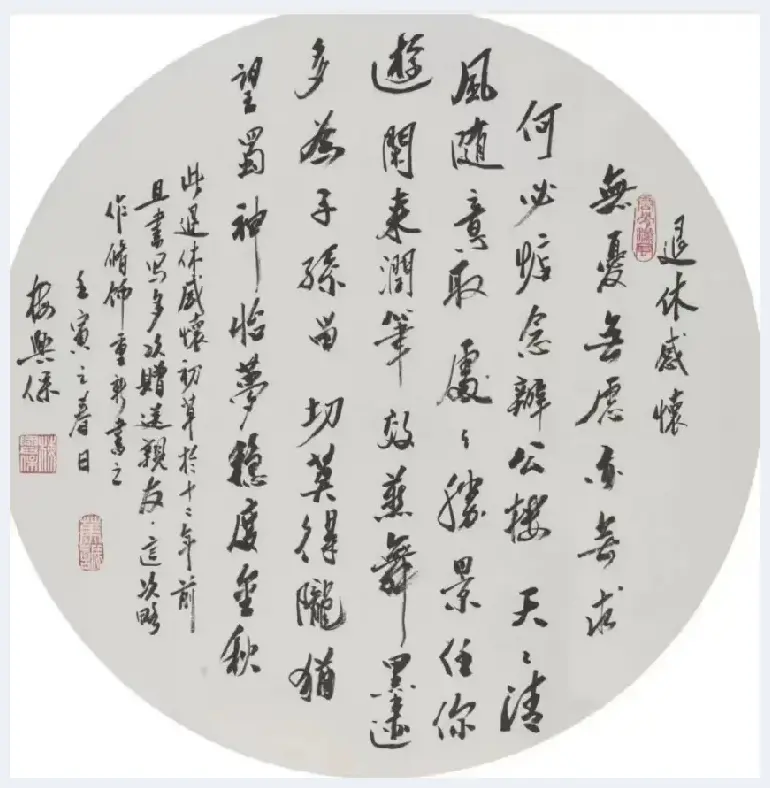 退休感懷
無憂無慮亦無求
何必惦念辦公樓 天〻清
風隨意取 處〻勝景任你
遊 閑來潤筆效燕舞 墨迹
多為子孫留 切莫得隴猶
望蜀 神怡夢穩度金秋
此退休感懷初草於十二年前
且書寫多次贈送親友．這次略
作脩飾重新書之
壬寅之春日
梅興保